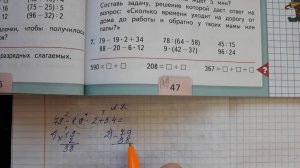 (75 – 25) : 5
(96 – 32) : 2
получилось
разрядных слагаемых.
Составь задачу, решение которой даст ответ на
вопрос: «Сколько времени уходит на дорогу от
дома до работы и обратно у твоих мамы или
папы?»
7. 79 – 19 · 2 + 34 78 : (64 – 58) 45 : 15
98 – 20 – 6 · 12 9 · (42 – 37) 96 : 24
590 = □ + □ 208 = □ + □ 367 = □ + □ + □
47
№7.
79 - 19 · 2 + 34 =
1) 19 2) 79
× 2 - 38
38